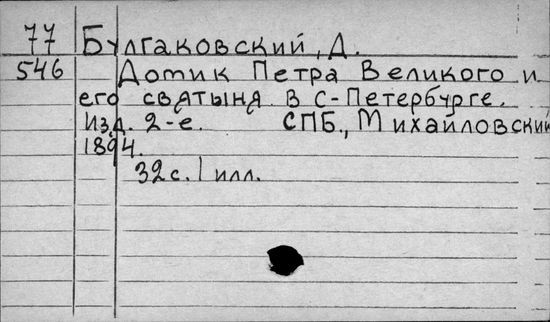 77 Булгаковский, Д.
546 Домик Петра Великого и
его святыня в С-Петербурге.
Изд. 2-е. СПБ., Михайловский
1894.
32с. 1 илл.